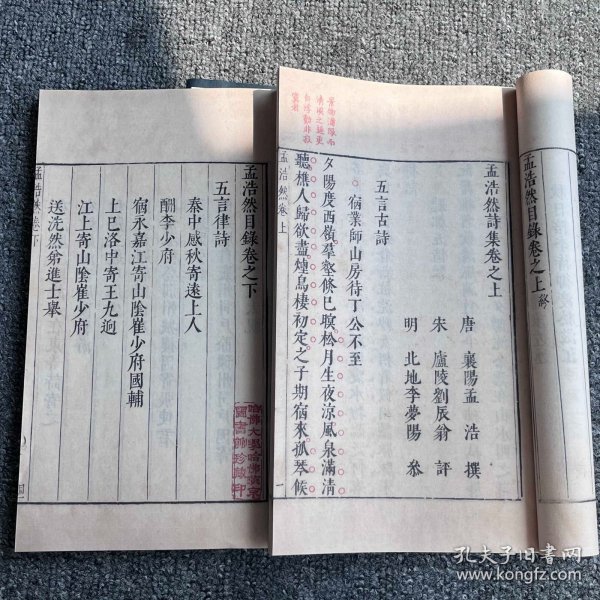 孟浩然目錄卷之上終
孟浩然詩集卷之上
唐 襄陽孟浩 撰
宋 廬陵劉辰翁 評
明 北地李夢陽 參
五言古詩
宿業師山房待丁公不至
夕陽度西嶺羣壑倏已暝松月生夜涼風泉滿清
聽樵人歸欲盡煙鳥棲初定之子期宿來孤琴候
景物滿眼而
清淡之趣更
自浮動非寂
寞者
孟浩然卷上
一
孟浩然目錄卷之下
五言律詩
秦中感秋寄遠上人
酬李少府
宿永嘉江寄山陰崔少府國輔
上巳洛中寄王九迥
江上寄山陰崔少府
送洗然弟進士舉
孟浩然卷下
哈佛大學哈佛燕京
圖書館珍藏印
孔夫子旧书网
www.kongfz.com